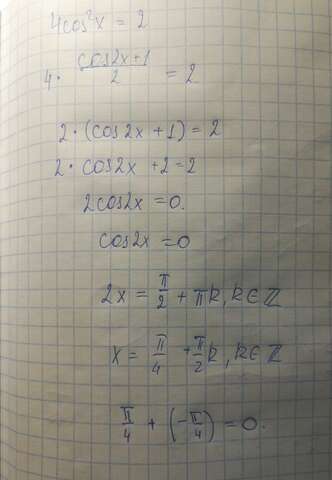 4cos²x = 2
4 · (cos2x+1)/2 = 2
2 · (cos2x + 1) = 2
2 · cos2x + 2 = 2
2cos2x = 0.
cos2x = 0
2x = π/2 + πk, k∈ℤ
x = π/4 + π/2 k, k∈ℤ
π/4 + (-π/4) = 0.